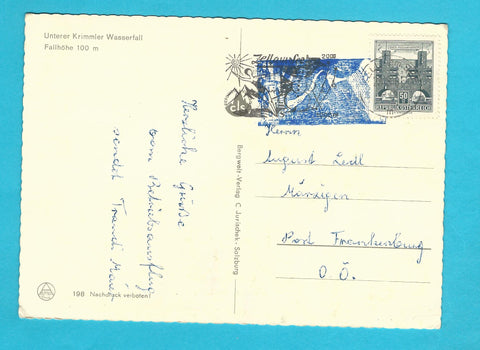 Unterer Krimmler Wasserfall
Fallhöhe 100 m
Herzliche Grüße
vom Betriebsausflug
sendet Traudi
Zell am See
50
REPUBLIK ÖSTERREICH
Herrn
August
Post Frankenburg
O Ö.
Bergwelt-Verlag C. Jurischek, Salzburg
198 Nachdruck verboten!